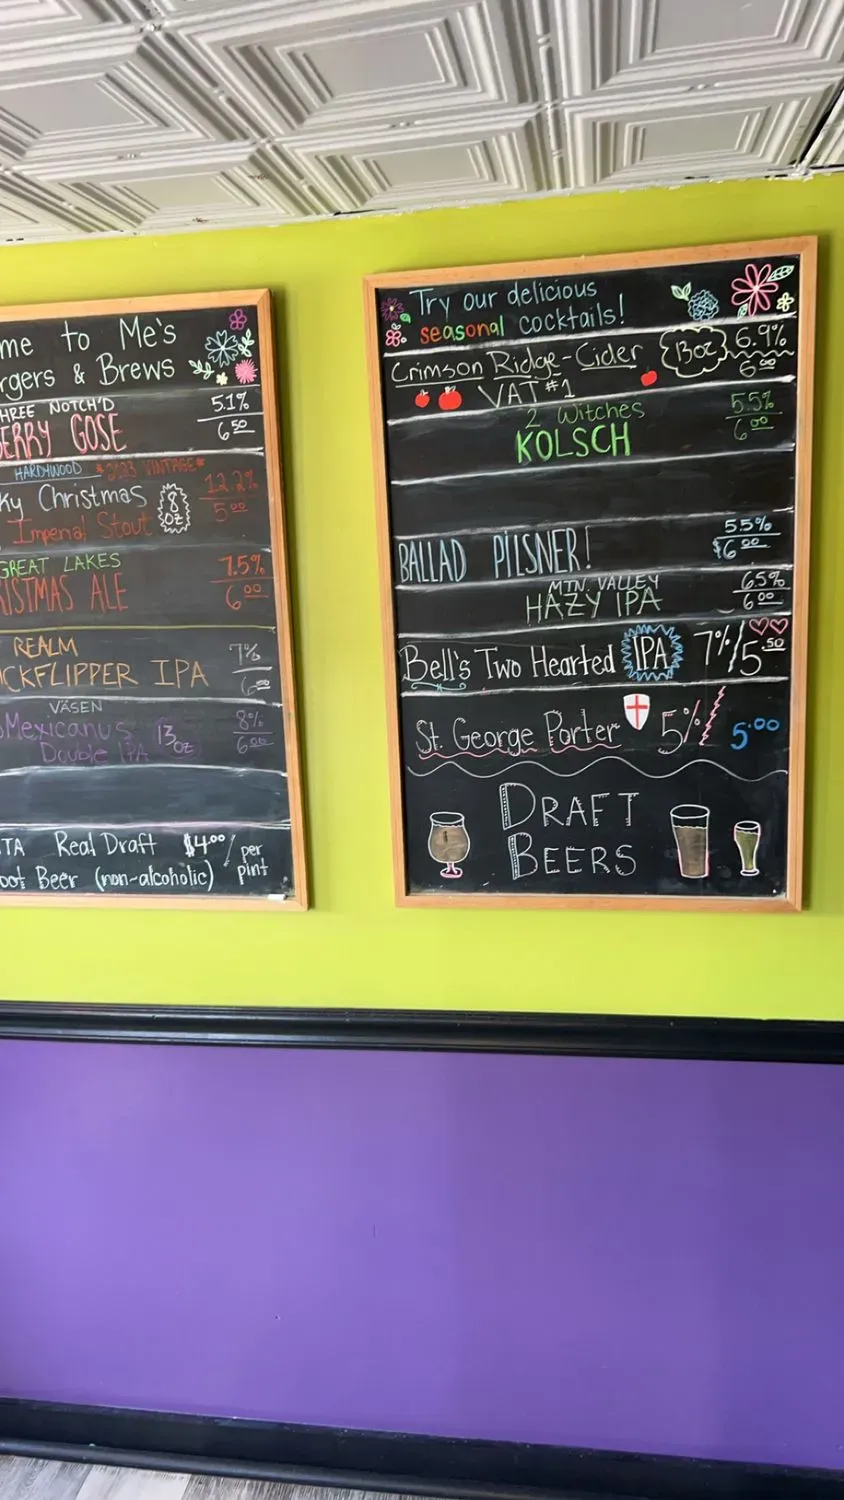 me to Me's
rgers & Brews
HREE NOTCH'D 5.1%
ERRY GOSE 6.50
HARDYWOOD *2023 VINTAGE*
ky Christmas 8 oz 12.2%
Imperial Stout 5.00
GREAT LAKES 7.5%
ISTMAS ALE 6.00
REALM 7%
CKFLIPPER IPA 6.00
VÄSEN
Mexicanus 13 oz 8%
Double IPA 6.00
TA Real Draft $4.00/ per
oot Beer (non-alcoholic) pint
Try our delicious
seasonal cocktails!
Crimson Ridge-Cider 13oz 6.9%
VAT #1 6.00
2 Witches 5.5%
KOLSCH 6.00
BALLAD PILSNER! 5.5%
$6.00
MTN. VALLEY 6.5%
HAZY IPA 6.00
Bell's Two Hearted IPA 7%/5.50
St. George Porter 5% 5.00
DRAFT
BEERS